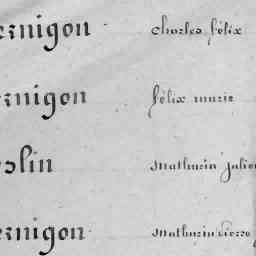 ernigon charles félix
ernigon félix marie
olin Mathurin Julien
ernigon Mathurin Pierre